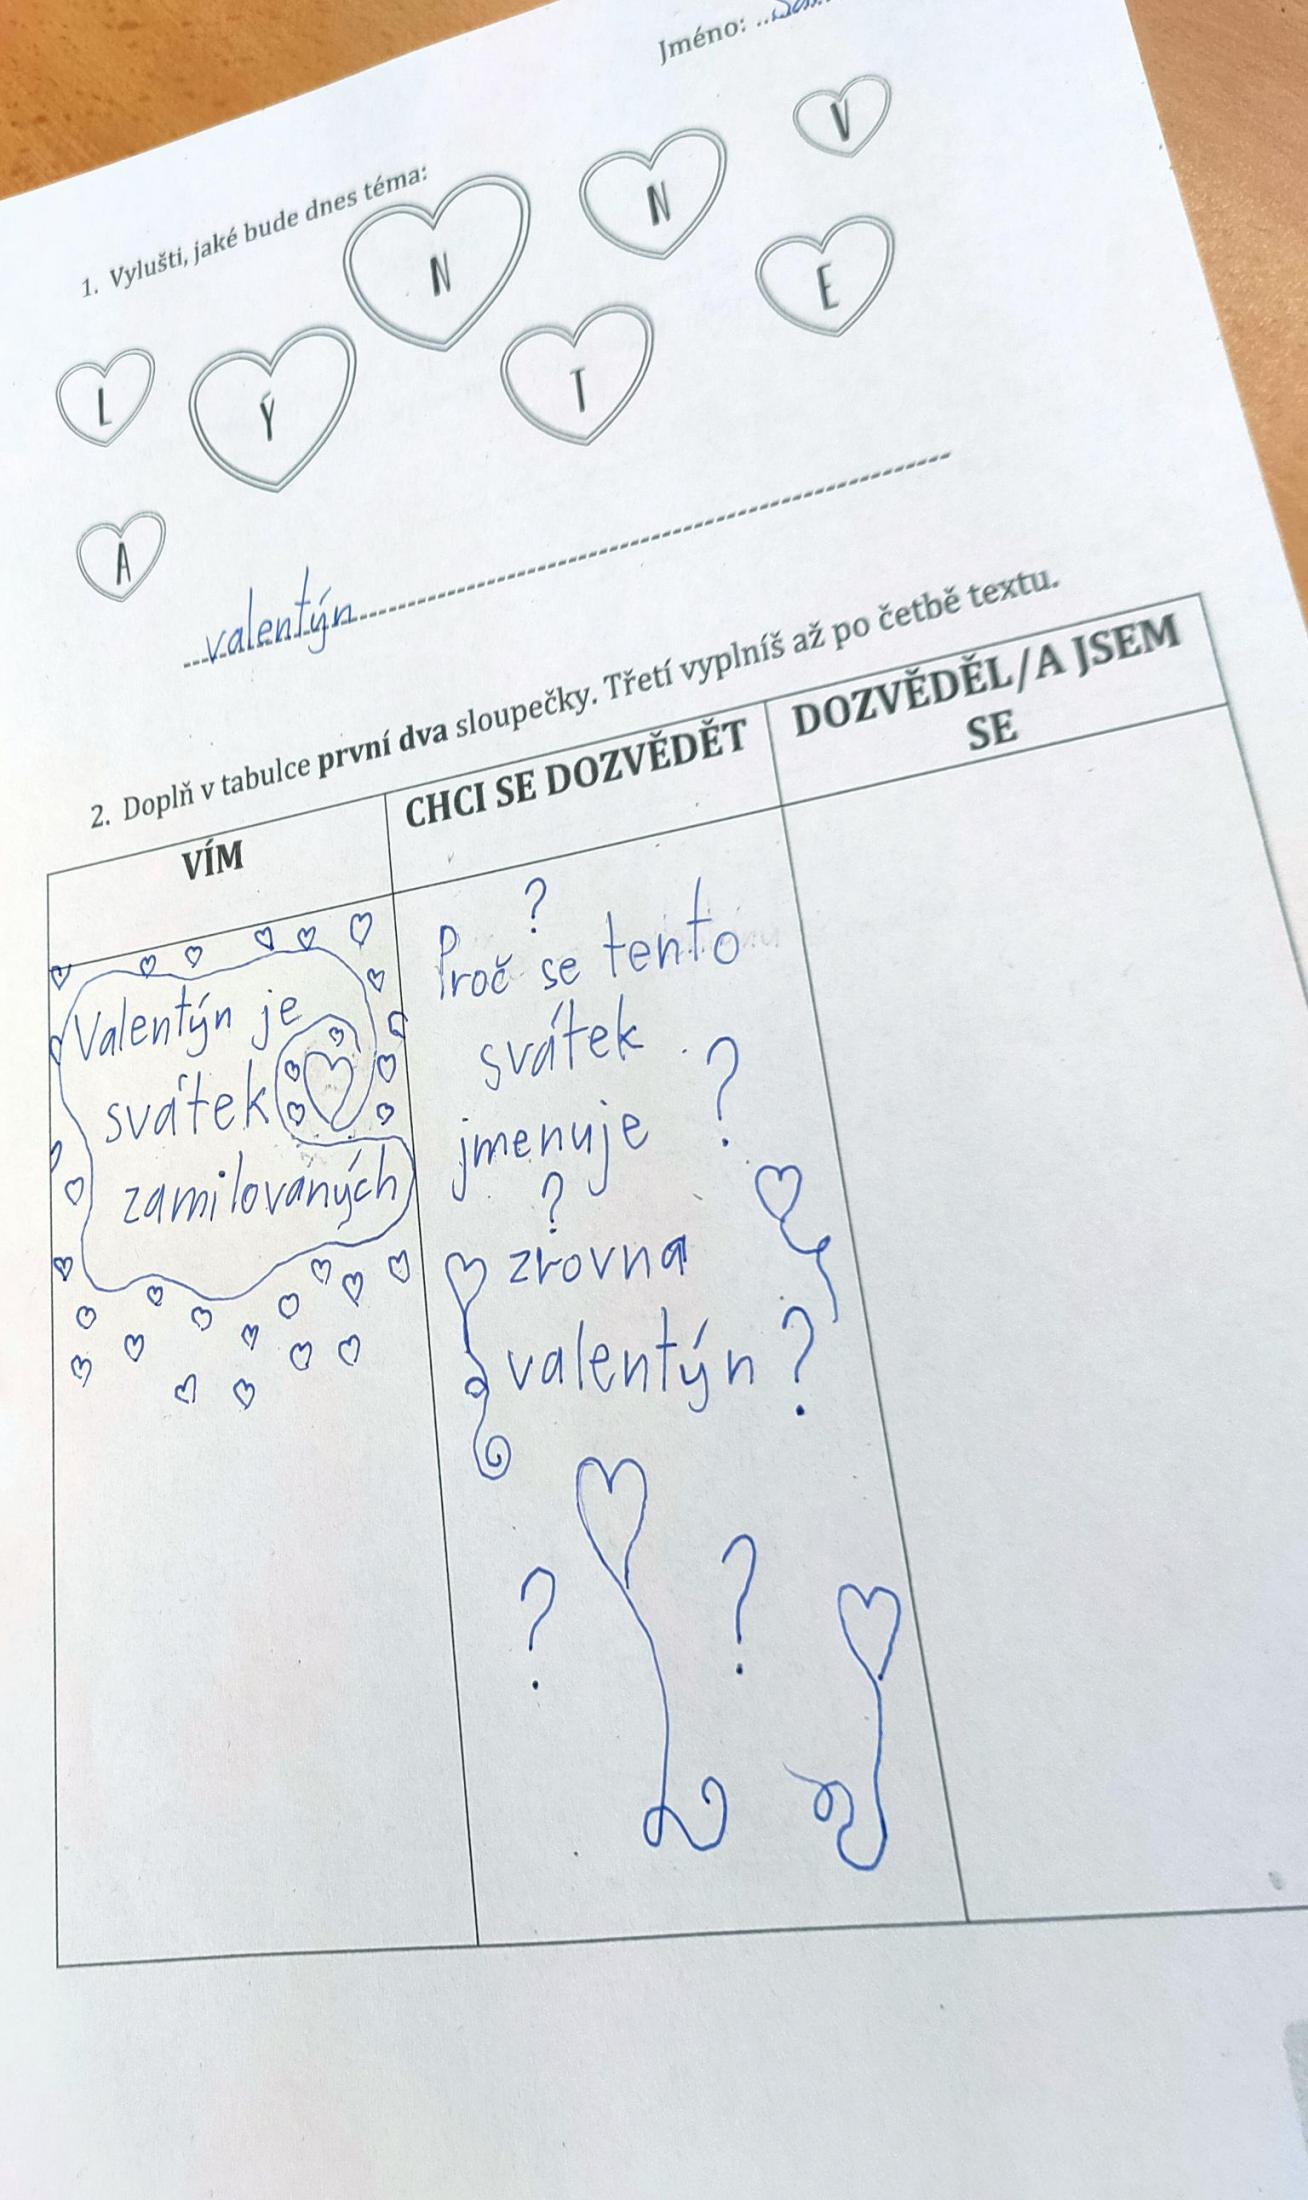 Jméno:
1. Vylušti, jaké bude dnes téma:
V
N
N
E
T
Ý
L
A
valentýn
2. Doplň v tabulce první dva sloupečky. Třetí vyplníš až po četbě textu.
VÍM
CHCI SE DOZVĚDĚT
DOZVĚDĚL/A JSEM
SE
Valentýn je
svátek
zamilovaných
?
Proč se tento
svátek
jmenuje ?
?
zrovna
valentýn ?
? ?